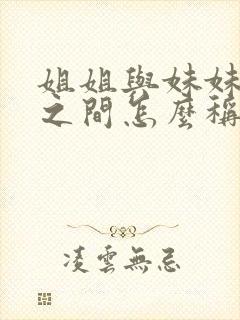 姐姐與妹妹
之間怎麼稱
凌雲無忌